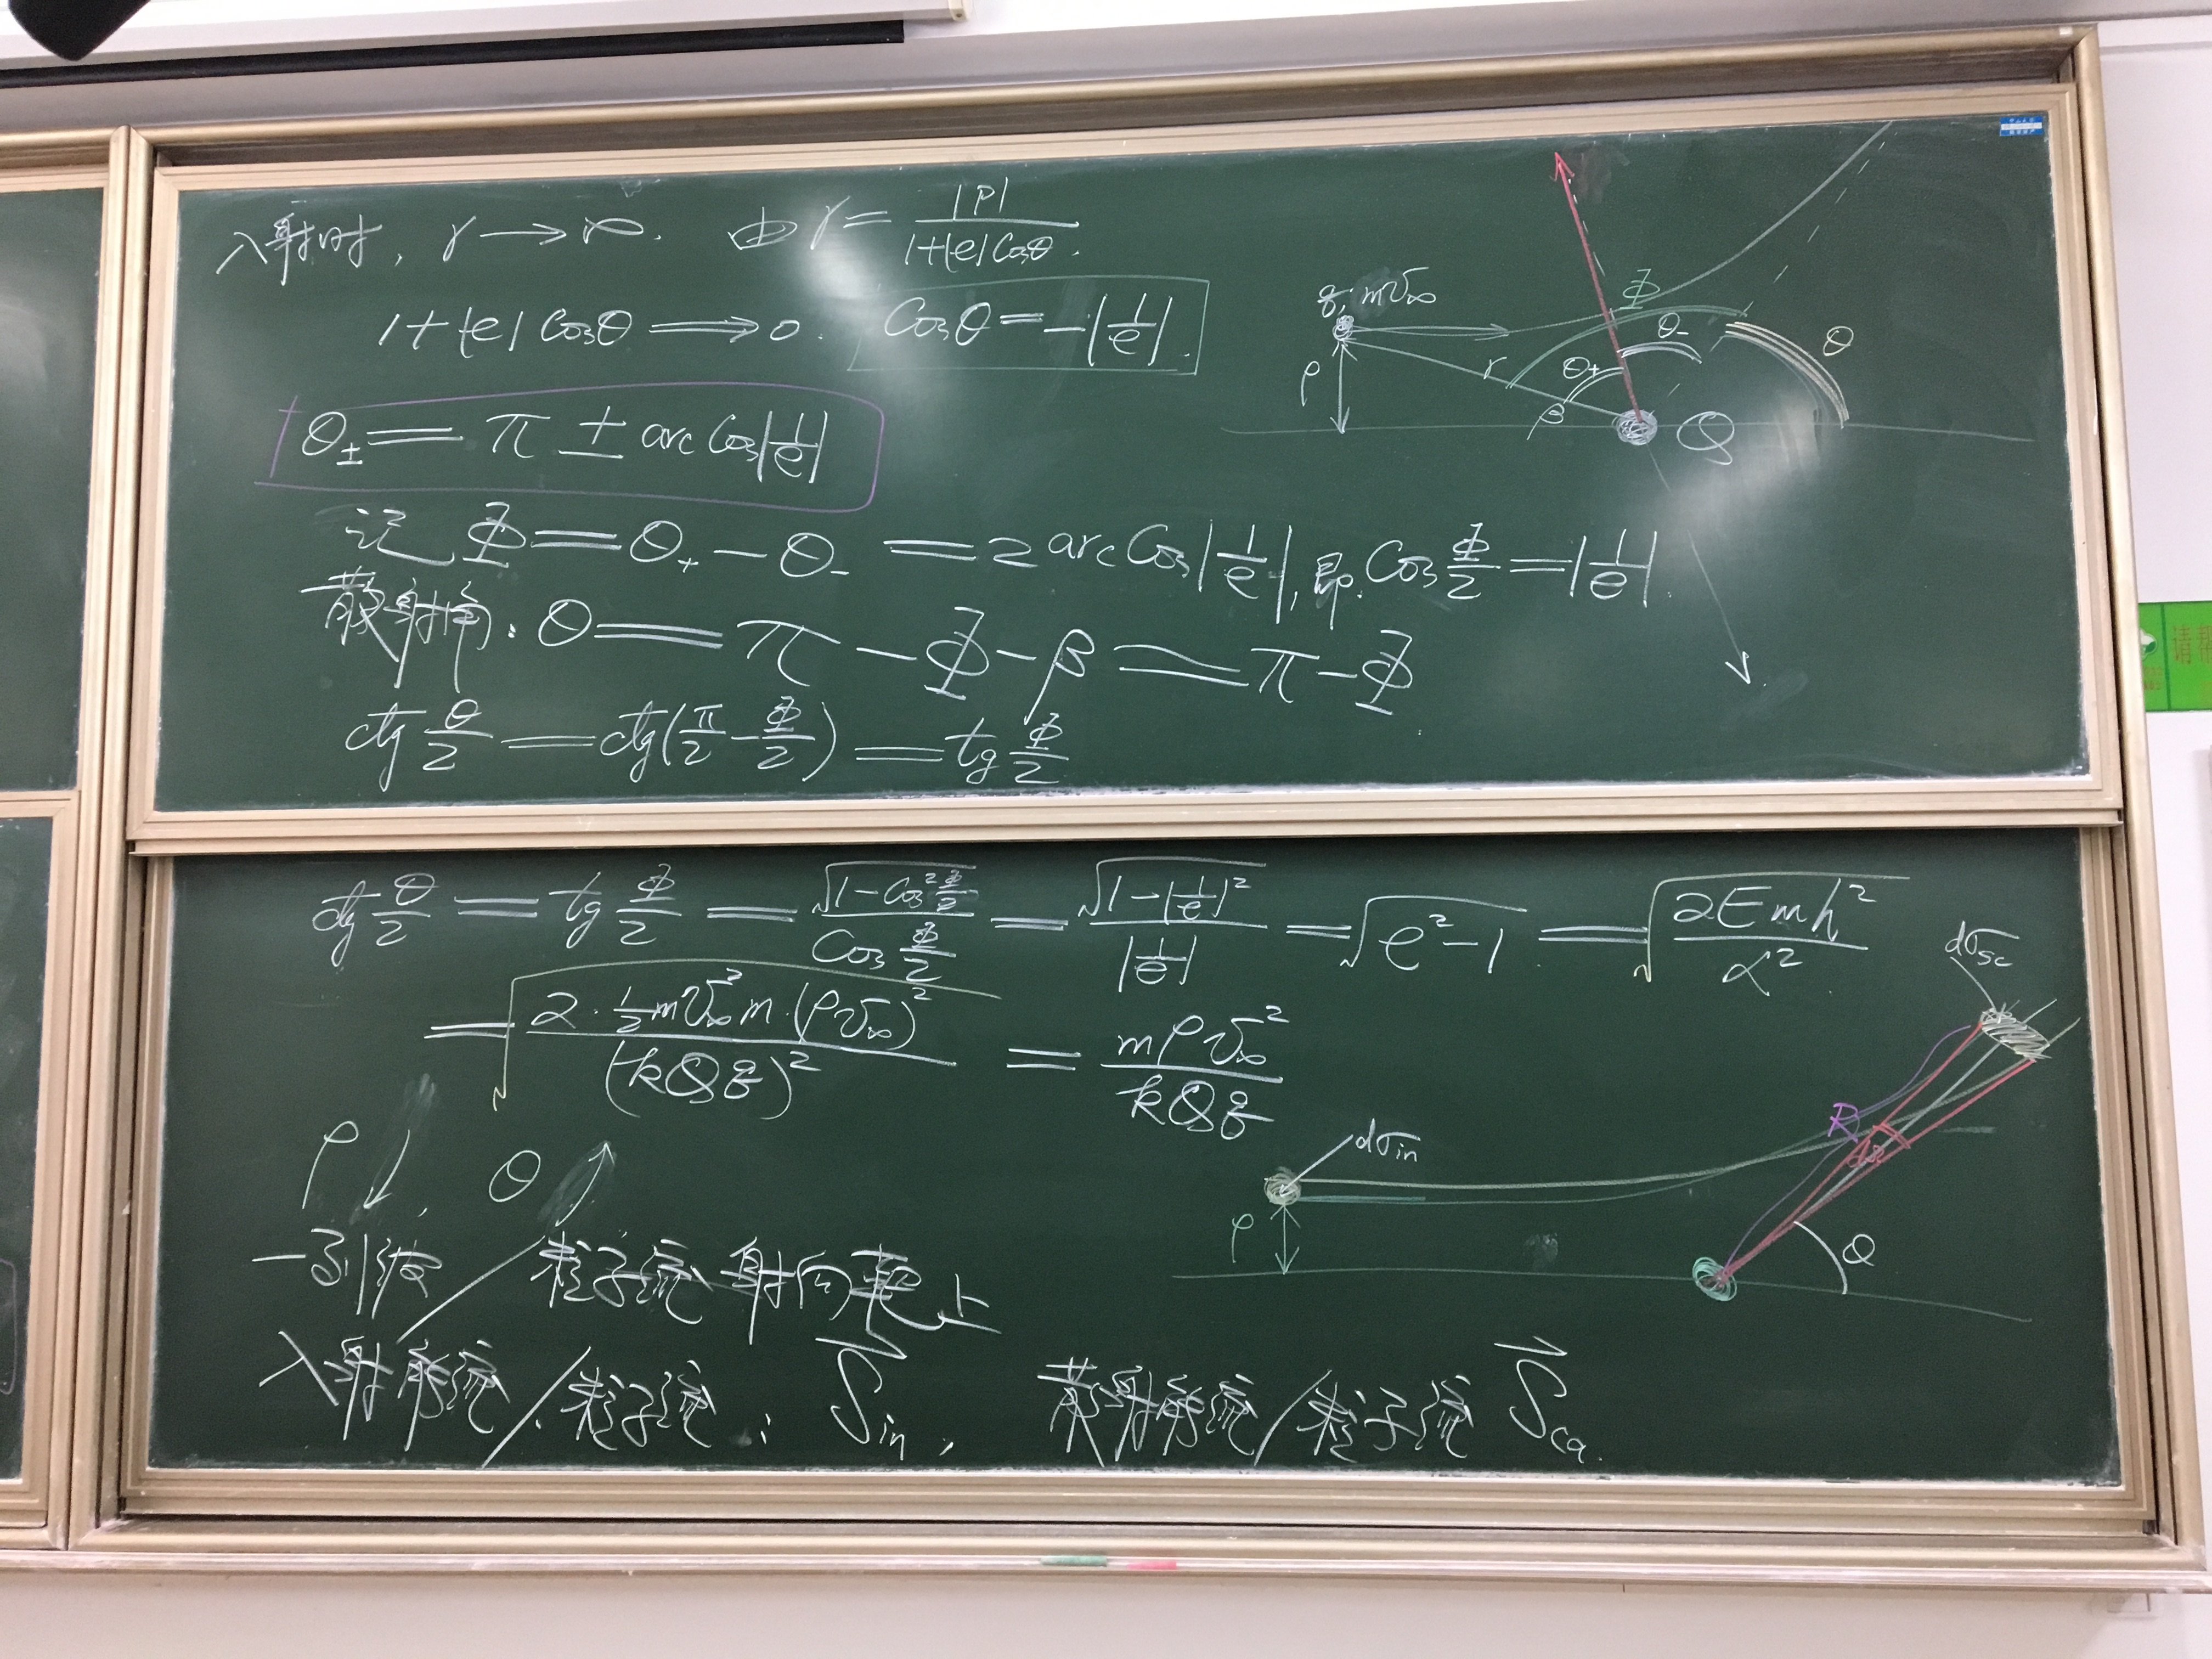 入射时, r ⟶ ∞. 由 r = |P| / (1+|e|Cosθ).
1+|e|Cosθ ⟹ 0. Cosθ = -|1/e|.
θ± = π ± arcCos|1/e|
记 Φ = θ₊ - θ₋ = 2arcCos|1/e|, 即 Cos Φ/2 = |1/e|.
散射角: θ = π - Φ - β = π - Φ
ctg θ/2 = ctg(π/2 - Φ/2) = tg Φ/2
q, mv∞
ρ
r
β
θ₊
θ₋
Φ
θ
Q
ctg θ/2 = tg Φ/2 = √(1-Cos² Φ/2) / Cos Φ/2 = √(1-|1/e|²) / |1/e| = √(e²-1) = √(2Emh²/α²)
= √(2·½mv∞²m·(ρv∞)² / (kQq)²) = mρv∞² / kQq
ρ↓, θ↗
一列波/粒子流射向靶上
入射能流/粒子流: S⃗in, 散射能流/粒子流 S⃗ca.
dσin
ρ
dσsc
R
dΩ
θ